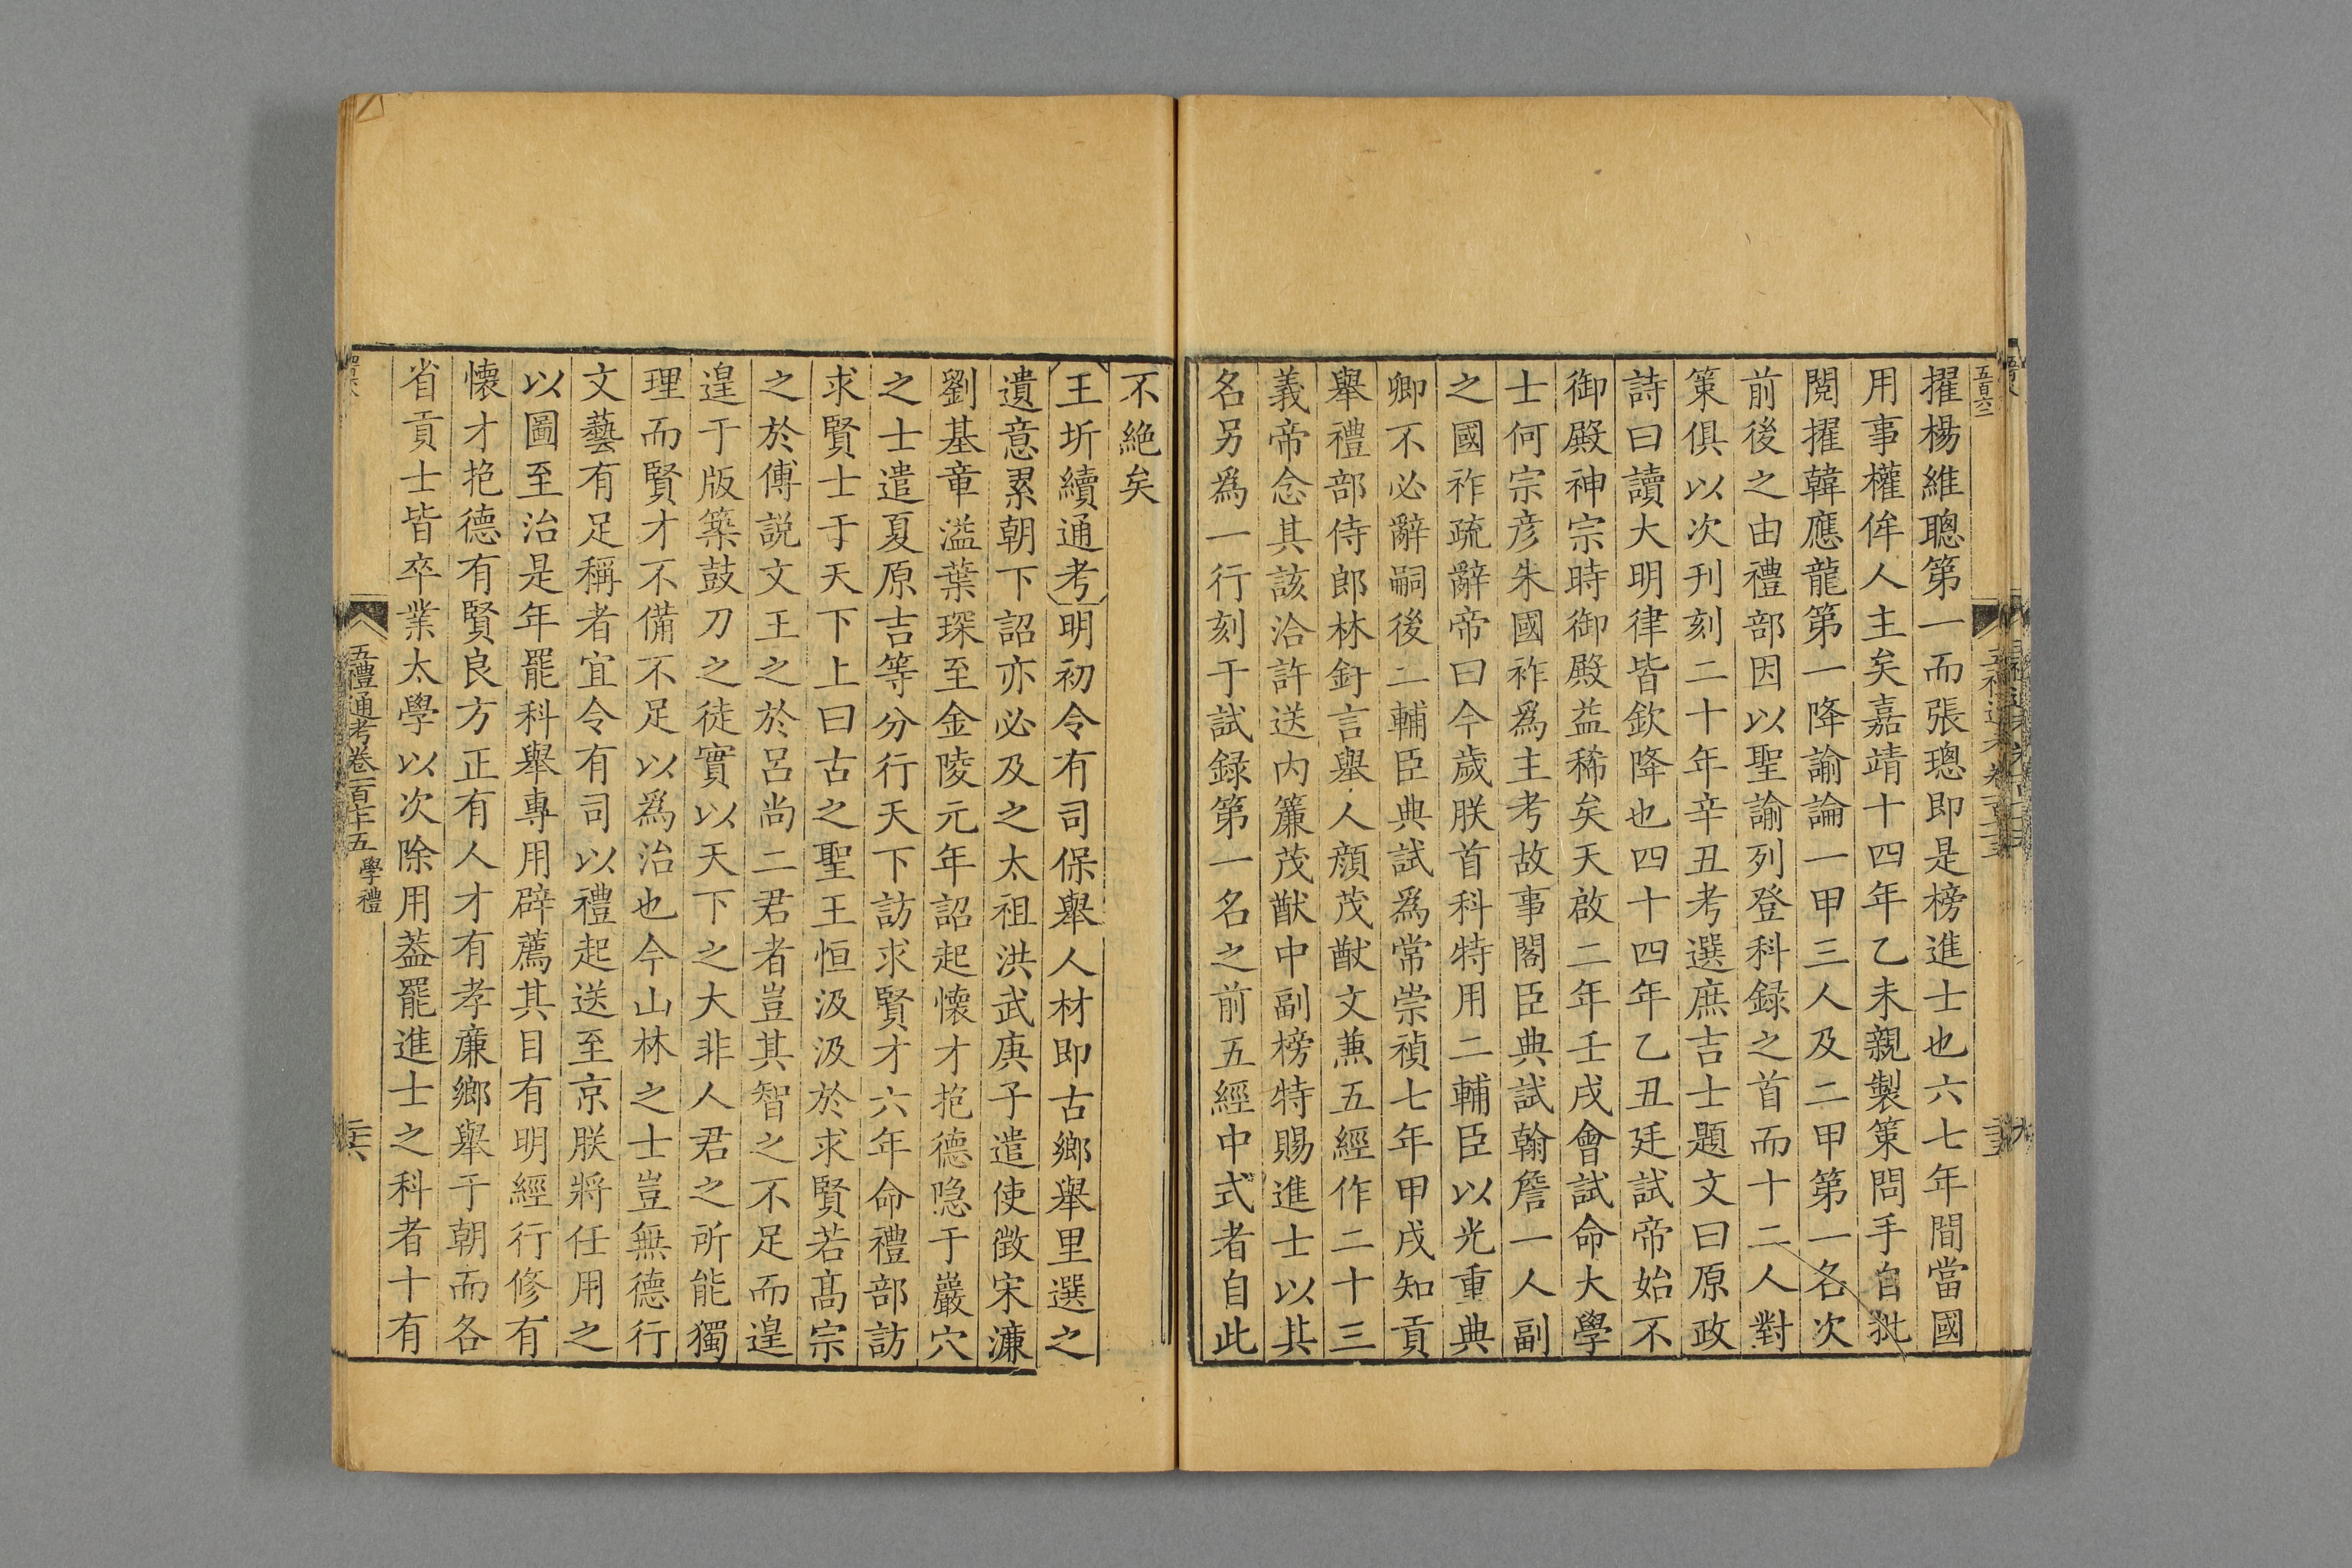 五百六二
擢楊維聰第一而張璁即是榜進士也六七年間當國
用事權侔人主矣嘉靖十四年乙未親製策問手自批
閱擢韓應龍第一降諭論一甲三人及二甲第一名次
前後之由禮部因以聖諭列登科録之首而十二人對
策俱以次刊刻二十年辛丑考選庶吉士題文曰原政
詩曰讀大明律皆欽降也四十四年乙丑廷試帝始不
御殿神宗時御殿益稀矣天啟二年壬戌會試命大學
士何宗彦朱國祚爲主考故事閣臣典試翰詹一人副
之國祚疏辭帝曰今歲朕首科特用二輔臣以光重典
卿不必辭嗣後二輔臣典試爲常崇禎七年甲戌知貢
舉禮部侍郎林釬言舉人顔茂猷文兼五經作二十三
義帝念其該洽許送内簾茂猷中副榜特賜進士以其
名另爲一行刻于試録第一名之前五經中式者自此
不絶矣
王圻續通考明初令有司保舉人材即古鄉舉里選之
遺意累朝下詔亦必及之太祖洪武庚子遣使徵宋濂
劉基章溢葉琛至金陵元年詔起懷才抱德隐于巖穴
之士遣夏原吉等分行天下訪求賢才六年命禮部訪
求賢士于天下上曰古之聖王恒汲汲於求賢若髙宗
之於傅説文王之於呂尚二君者豈其智之不足而遑
遑于版築鼓刀之徒實以天下之大非人君之所能獨
理而賢才不備不足以爲治也今山林之士豈無德行
文藝有足稱者宜令有司以禮起送至京朕將任用之
以圖至治是年罷科舉專用辟薦其目有明經行修有
懷才抱德有賢良方正有人才有孝廉鄉舉于朝而各
省貢士皆卒業太學以次除用葢罷進士之科者十有
五禮通考卷一百七十五 學禮 二十六